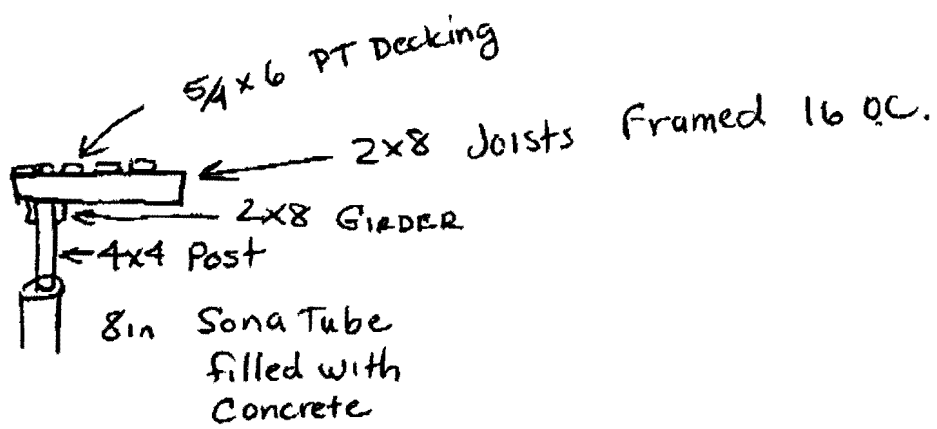 5/4 x 6 PT Decking
2x8 Joists Framed 16 O.C.
2x8 GIRDER
4x4 Post
8in Sona Tube
filled with
Concrete